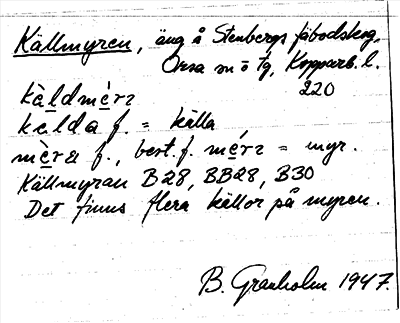 Källmyren, äng å Stenbergs fäbodskog,
Orsa sn o tg, Kopparb. l.
220
kèldmèrɪ
kèlda f. = källa
mèra f., best. f. mérɪ = myr.
Källmyran B28, BB28, B30
Det finns flera källor på myren.
B. Granholm 1947.